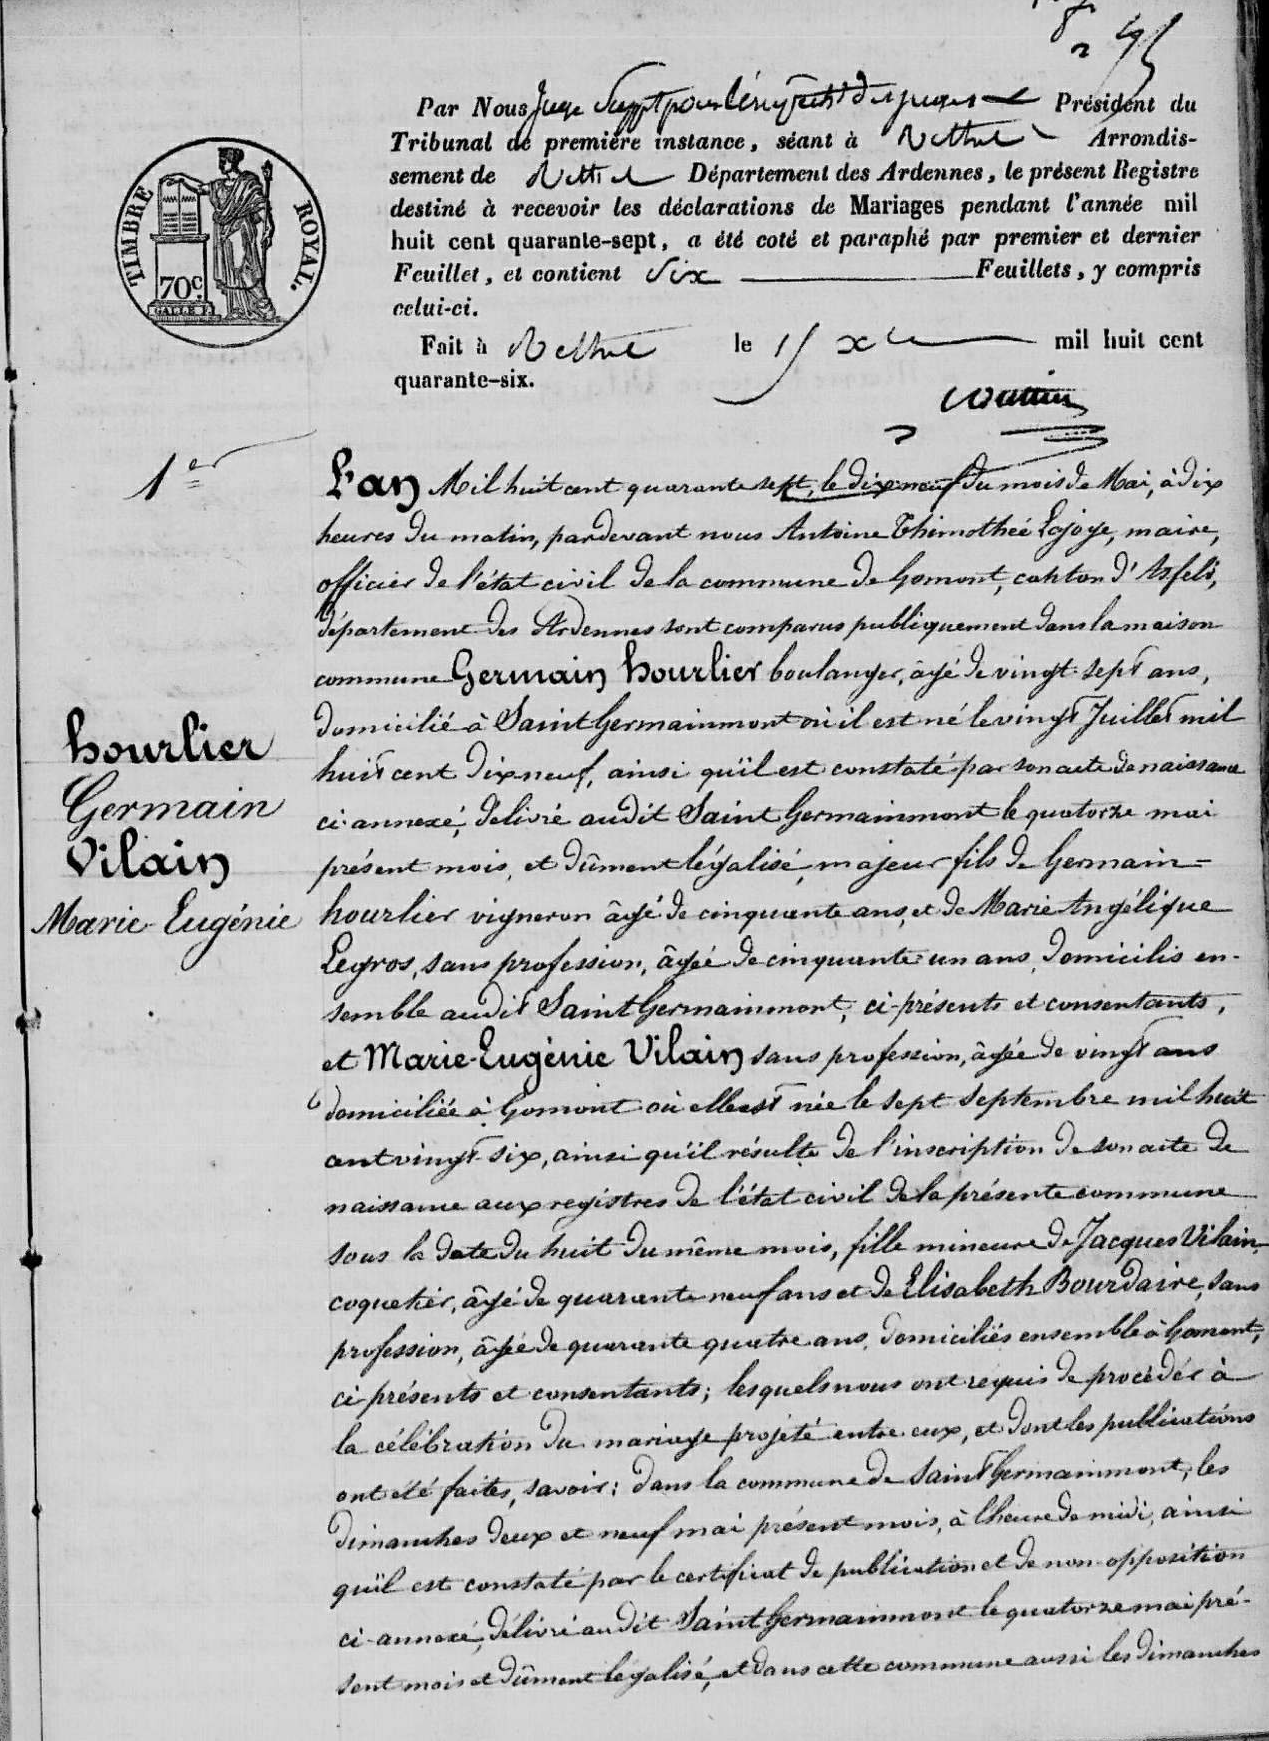 Par Nous Juge Suppt pour l'empêcht des juges Président du
Tribunal de première instance, séant à Rethel Arrondis-
sement de Rethel Département des Ardennes, le présent Registre
destiné à recevoir les déclarations de Mariages pendant l'année mil
huit cent quarante-sept, a été coté et paraphé par premier et dernier
Feuillet, et contient Six Feuillets, y compris
celui-ci.
Fait à Rethel le 15 xbre mil huit cent
quarante-six.
TIMBRE ROYAL.
70c.
1er
L'an Mil huit cent quarante sept, le dix neuf du mois de Mai, à dix
heures du matin, pardevant nous Antoine Thimothée Lajoye, maire,
officier de l'état civil de la commune de Gomont, canton d'Asfeld,
département des Ardennes sont comparus publiquement dans la maison
commune Germain hourlier boulanger, âgé de vingt-sept ans,
domicilié à Saint Germainmont où il est né le vingt Juillet mil
huit cent dix neuf, ainsi qu'il est constaté par son acte de naissance
ci-annexé, délivré audit Saint Germainmont le quatorze mai
présent mois, et dûment légalisé, majeur fils de Germain=
hourlier vigneron âgé de cinquante ans, et de Marie Angélique
Legros, sans profession, âgée de cinquante un ans, domiciliés en-
semble audit Saint Germainmont, ci-présents et consentants,
et Marie-Eugénie Vilain sans profession, âgée de vingt ans
domiciliée à Gomont où elle est née le sept septembre mil huit
cent vingt-six, ainsi qu'il résulte de l'inscription de son acte de
naissance aux registres de l'état civil de la présente commune
sous la date du huit du même mois, fille mineure de Jacques Vilain
coquetier, âgé de quarante neuf ans et de Elisabeth Bourdaire, sans
profession, âgée de quarante quatre ans, domiciliés ensemble à Gomont,
ci-présents et consentants; lesquels nous ont requis de procéder à
la célébration du mariage projeté entre eux, et dont les publications
ont été faites, savoir: dans la commune de Saint Germainmont, les
dimanches deux et neuf mai présent mois, à l'heure de midi, ainsi
qu'il est constaté par le certificat de publication et de non-opposition
ci-annexé, délivré audit Saint Germainmont le quatorze mai pré-
sent mois et dûment légalisé, et dans cette commune aussi les dimanches
hourlier
Germain
Vilain
Marie-Eugénie